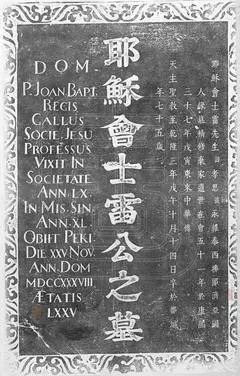 D.O.M.
P. JOAN BAPT.
REGIS
GALLUS
SOCIE. JESU
PROFESSUS
VIXIT IN
SOCIETATE
ANN. LX.
IN MIS. SIN.
ANN. XL.
OBIIT PEKI.
DIE XXV NOV.
ANN. DOM
MDCCXXXVIII
ÆTATIS
LXXV
耶穌會士雷公之墓
耶穌會士雷先生諱孝思號永維泰西拂浪濟亞國
人緣慕精修棄家遁世在會五十一年於康熙
三十七年戊寅東來中華傳
天主聖教至乾隆三年戊午十月十四日卒於帝城
年七十五歲